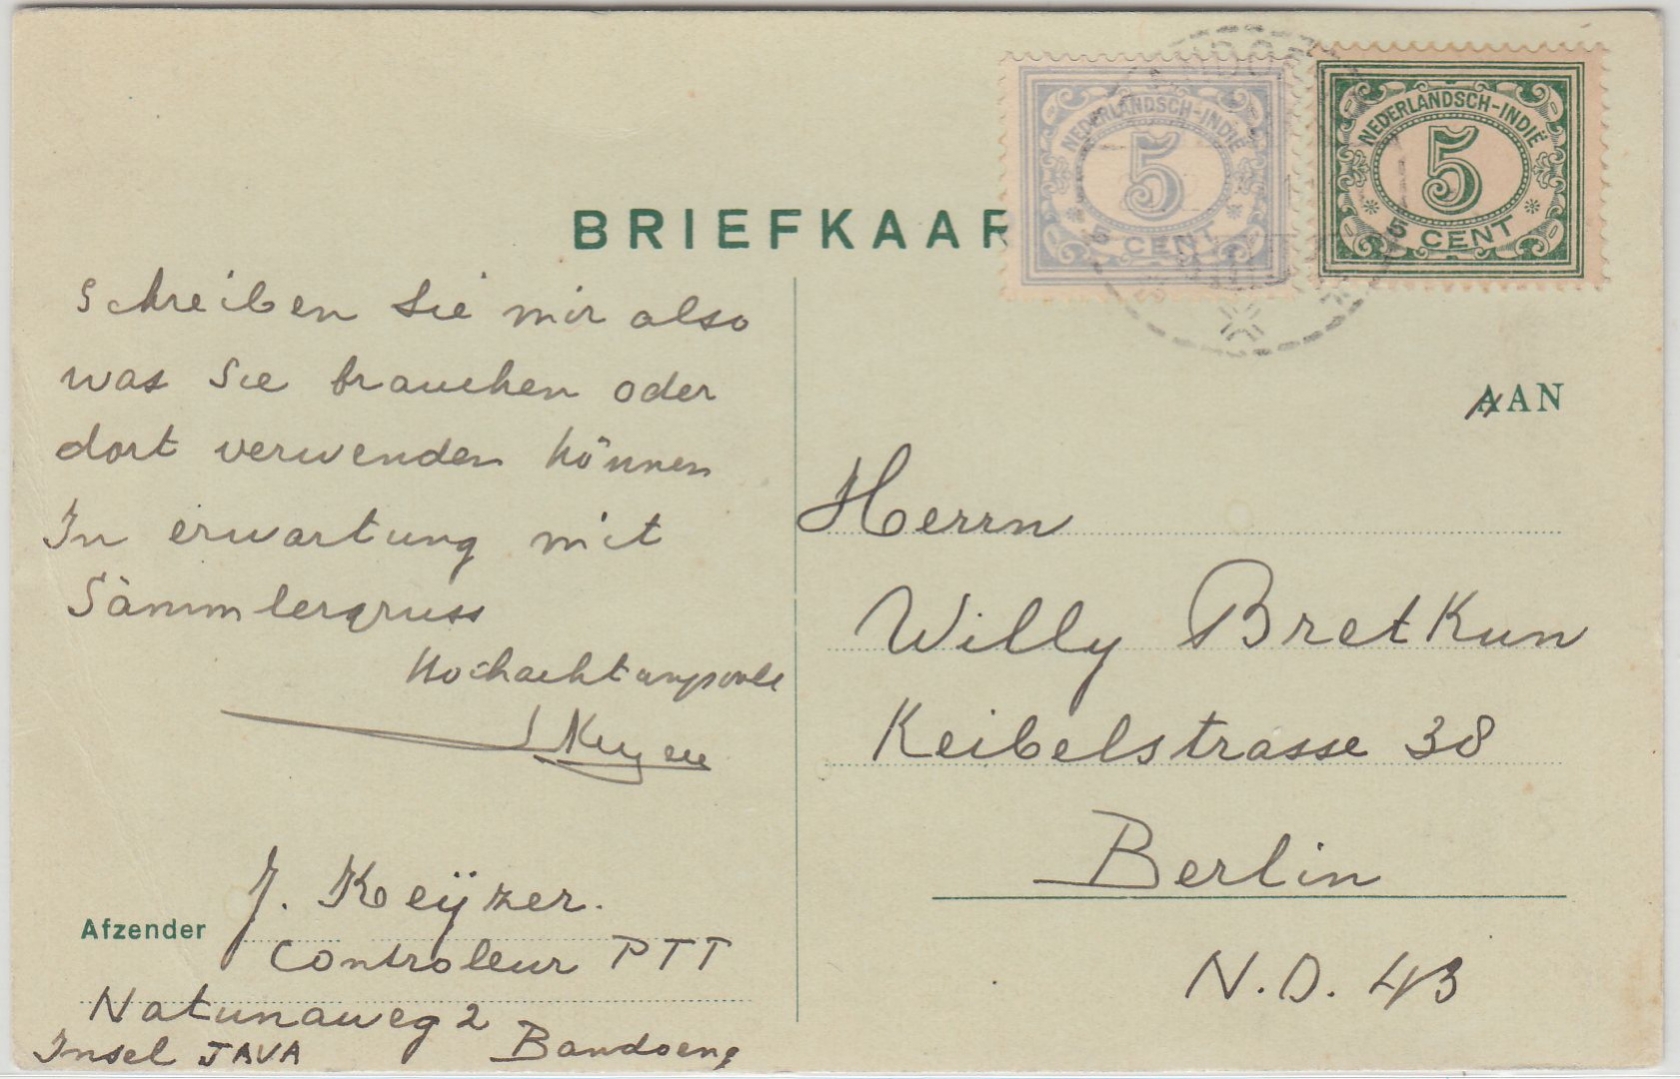 BRIEFKAAR
NEDERLANDSCH-INDIË
5
5 CENT
NEDERLANDSCH-INDIË
5
5 CENT
Schreiben Sie mir also
was Sie brauchen oder
dort verwenden können
In erwartung mit
Sämmlergruss
Hochachtungsvoll
J Keyzer
Afzender
J. Keÿzer.
Controleur PTT
Natunaweg 2
Insel JAVA Bandoeng
AAN
Herrn
Willy Bretkun
Keibelstrasse 38
Berlin
N.O. 43